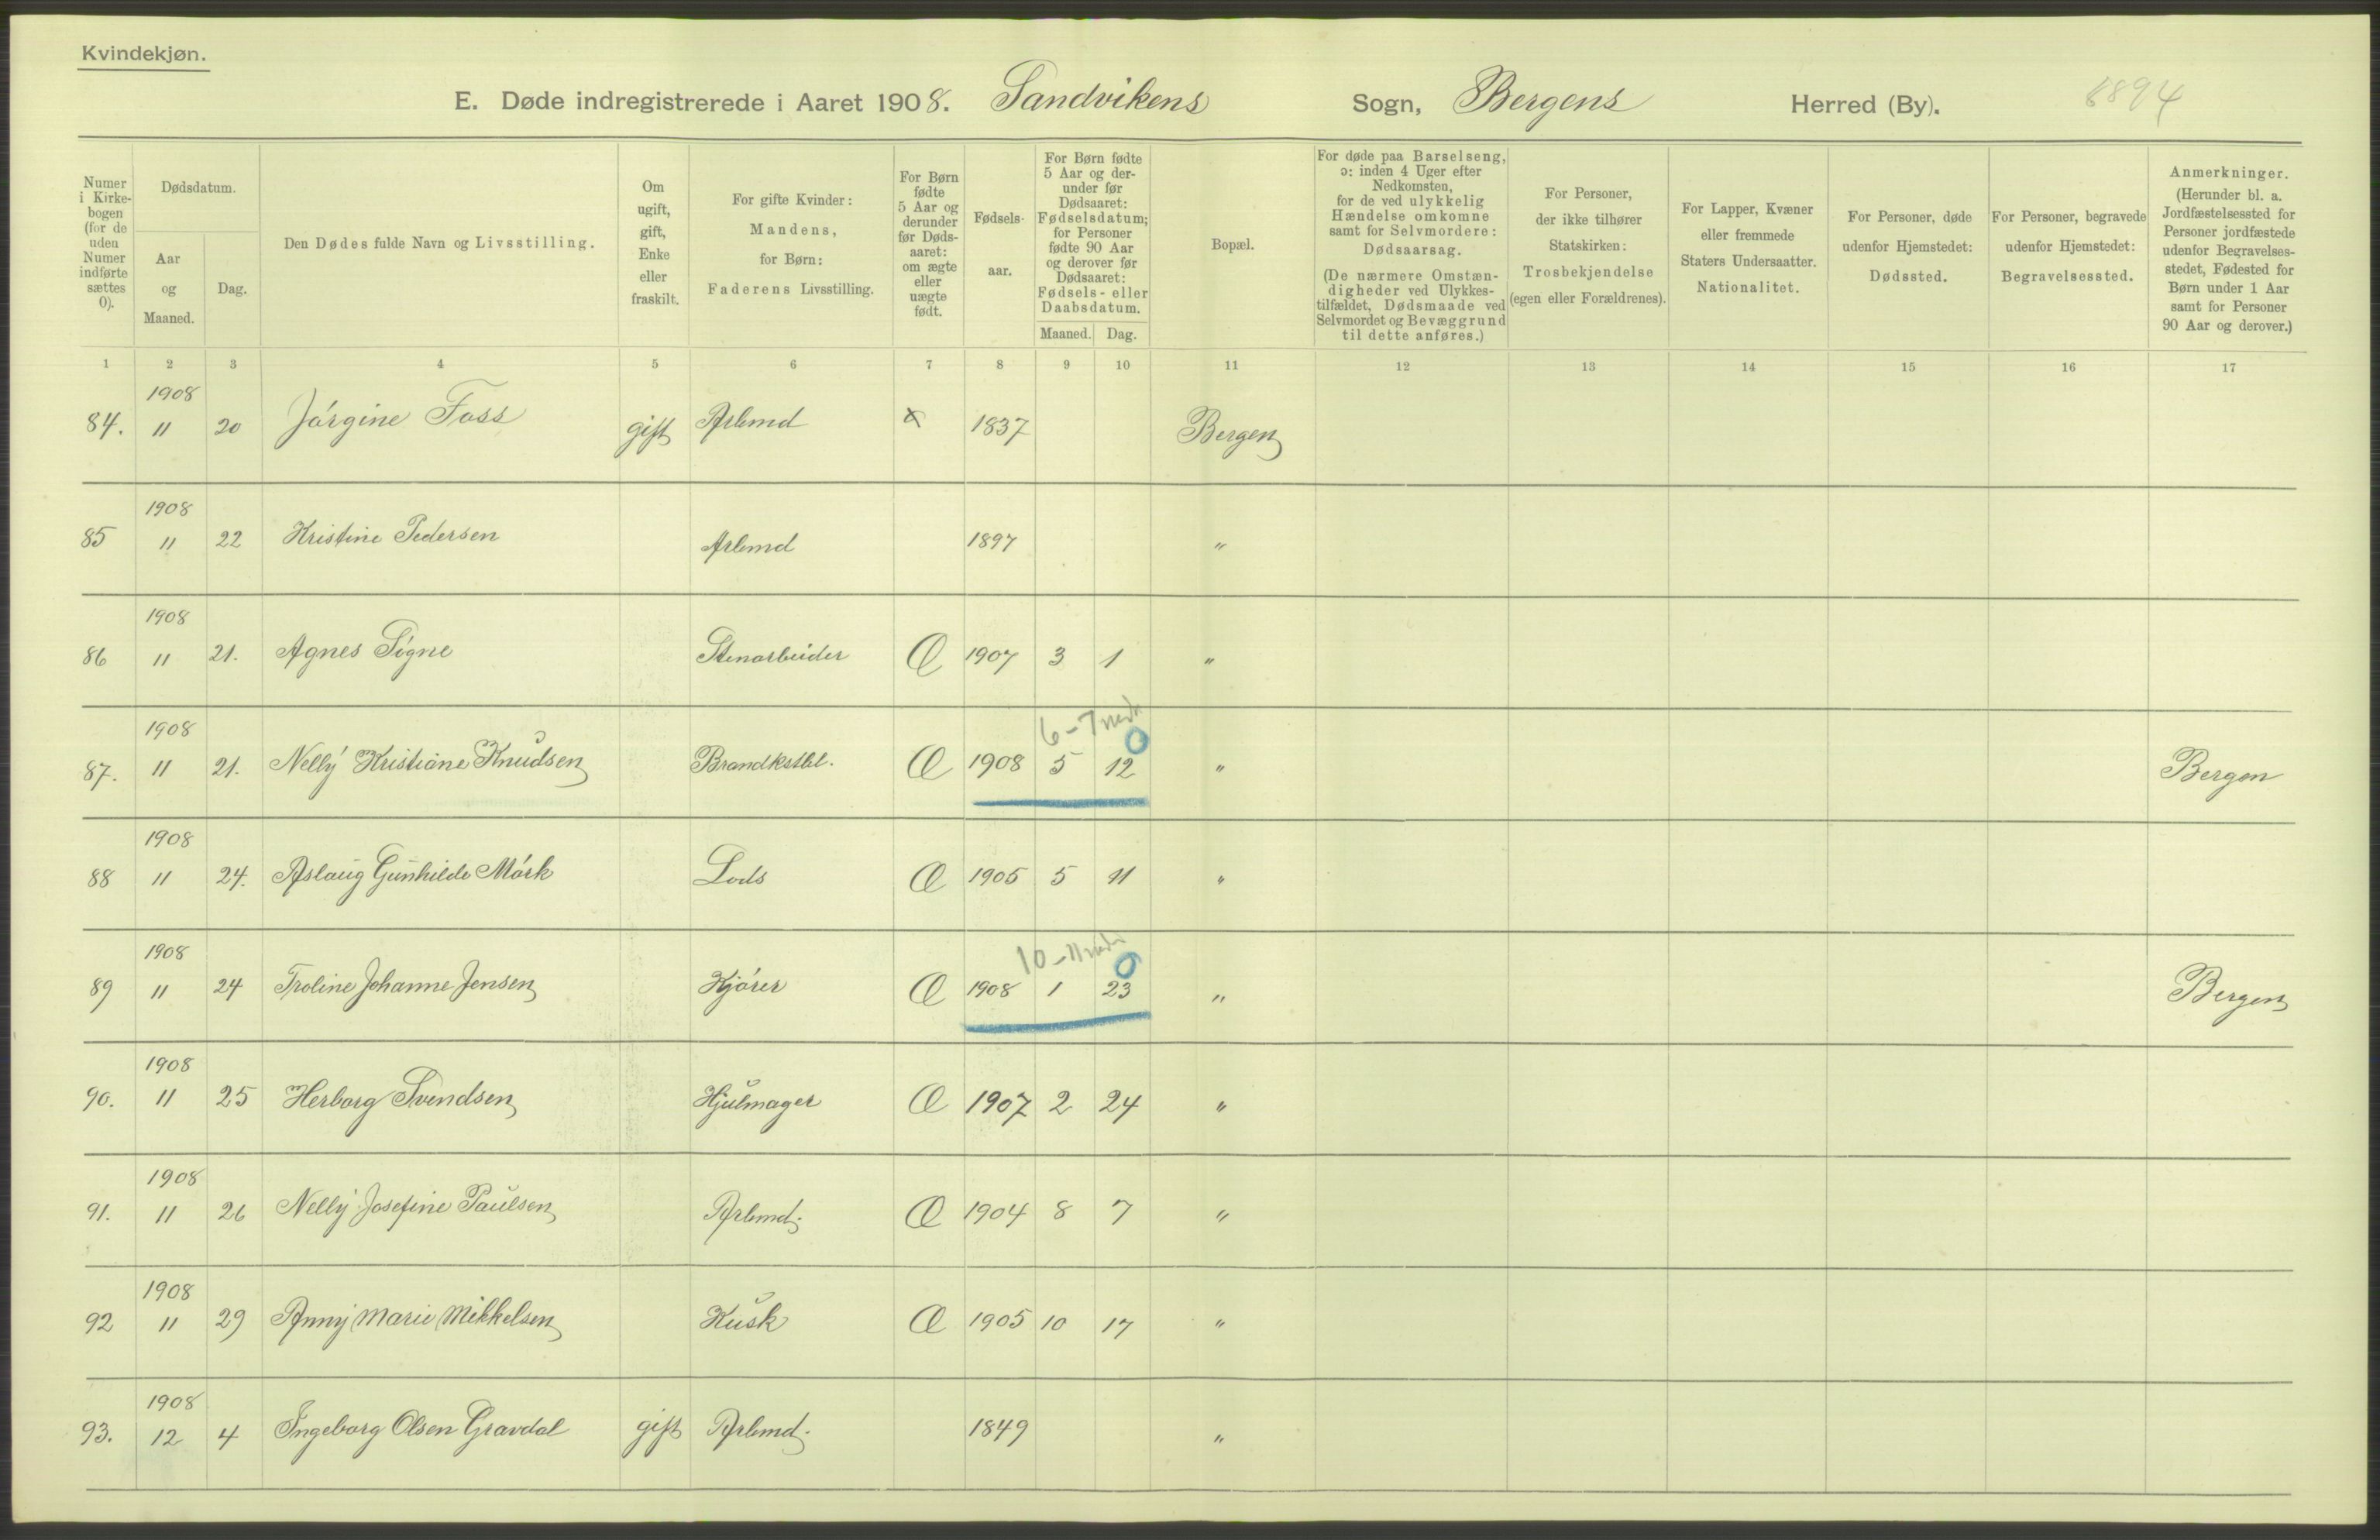 Kvindekjøn.
E. Døde indregistrerede i Aaret 1908. Sandvikens Sogn, Bergens Herred (By). 8894
Numer i Kirkebogen (for de uden Numer indførte sættes 0).
Dødsdatum.
Aar og Maaned.
Dag.
Den Dødes fulde Navn og Livsstilling.
Om ugift, gift, Enke eller fraskilt.
For gifte Kvinder: Mandens, for Børn: Faderens Livsstilling.
For Børn fødte 5 Aar og derunder før Dødsaaret: om ægte eller uægte født.
Fødselsaar.
For Børn fødte 5 Aar og derunder før Dødsaaret: Fødselsdatum; for Personer fødte 90 Aar og derover før Dødsaaret: Fødsels- eller Daabsdatum.
Maaned. Dag.
Bopæl.
For døde paa Barselseng, ɔ: inden 4 Uger efter Nedkomsten, for de ved ulykkelig Hændelse omkomne samt for Selvmordere: Dødsaarsag.
(De nærmere Omstændigheder ved Ulykkestilfældet, Dødsmaade ved Selvmordet og Bevæggrund til dette anføres.)
For Personer, der ikke tilhører Statskirken: Trosbekjendelse (egen eller Forældrenes).
For Lapper, Kvæner eller fremmede Staters Undersaatter. Nationalitet.
For Personer, døde udenfor Hjemstedet: Dødssted.
For Personer, begravede udenfor Hjemstedet: Begravelsessted.
Anmerkninger.
(Herunder bl. a. Jordfæstelsessted for Personer jordfæstede udenfor Begravelsesstedet, Fødested for Børn under 1 Aar samt for Personer 90 Aar og derover.)
1 2 3 4 5 6 7 8 9 10 11 12 13 14 15 16 17
1908
84. 11 20 Jórgine Foss gift Arbmd 1837 Bergen
1908
85 11 22 Kristine Pedersen Arbmd 1897 "
1908
86 11 21. Agnes Signe Stenarbeider Æ 1907 3 1 "
6-7 mdr
1908 0
87. 11 21. Nelly Kristiane Knudsen Brandkstbl. Æ 1908 5 12 " Bergen
1908
88 11 24. Aslaug Gunhilde Mórk Lods Æ 1905 5 11 "
10-11 mdr
1908 0
89 11 24 Troline Johanne Jensen Kjórer Æ 1908 1 23 " Bergen
1908
90. 11 25 Herborg Svendsen Hjulmager Æ 1907 2 24 "
1908
91. 11 26 Nelly Josefine Paulsen Arbmd. Æ 1904 8 7 "
1908
92 11 29 Anny Marie Mikkelsen Kusk Æ 1905 10 17 "
1908
93. 12 4 Ingeborg Olsen Gravdal gift Arbmd. 1849 "